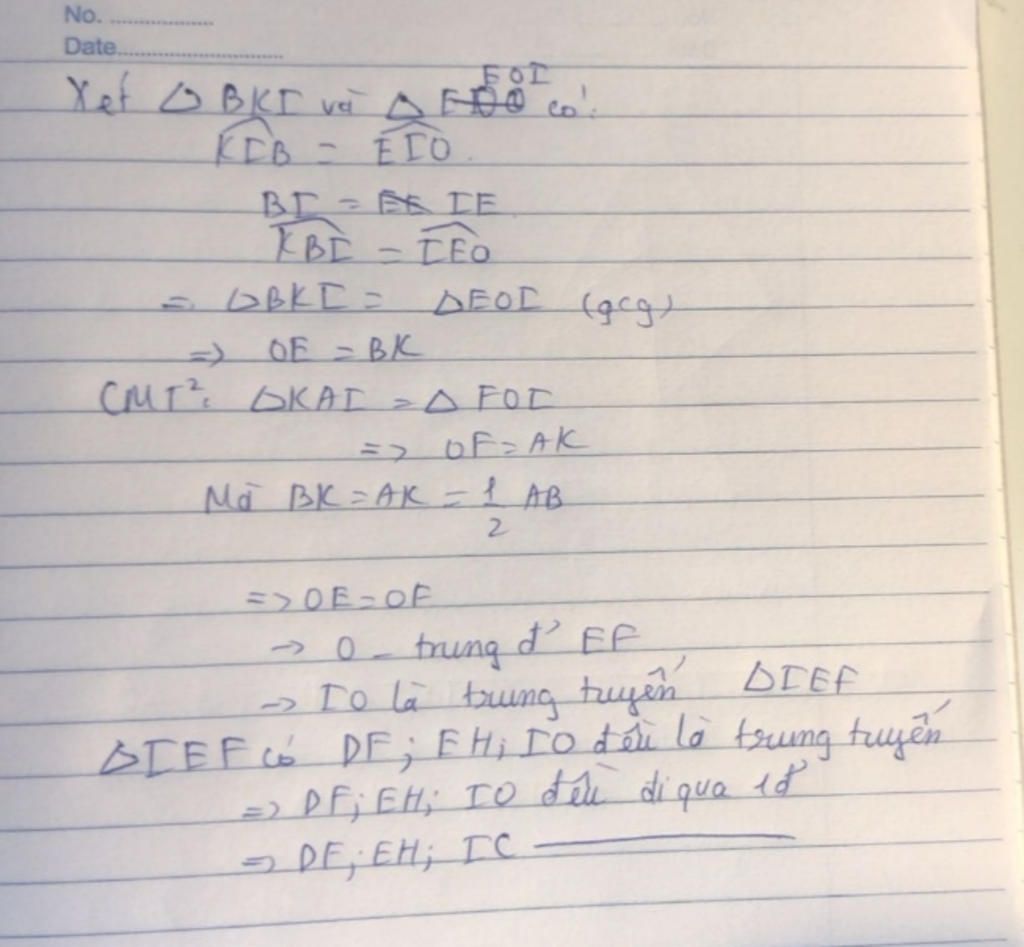 No. ..................
Date.............................
Xét △ BKI và △ EOI có:
KIB = EIO.
BI = IE
KBI = IEO
= △BKI = △EOI (gcg)
=> OE = BK
CMT²: △KAI = △ FOI
=> OF = AK
Mà BK = AK = 1/2 AB
=> OE = OF
-> O - trung đ' EF
-> IO là trung tuyến △IEF
△IEF có DF; EH; IO đều là trung tuyến
=> DF; EH; IO đều đi qua 1đ'
=> DF; EH; IC ————